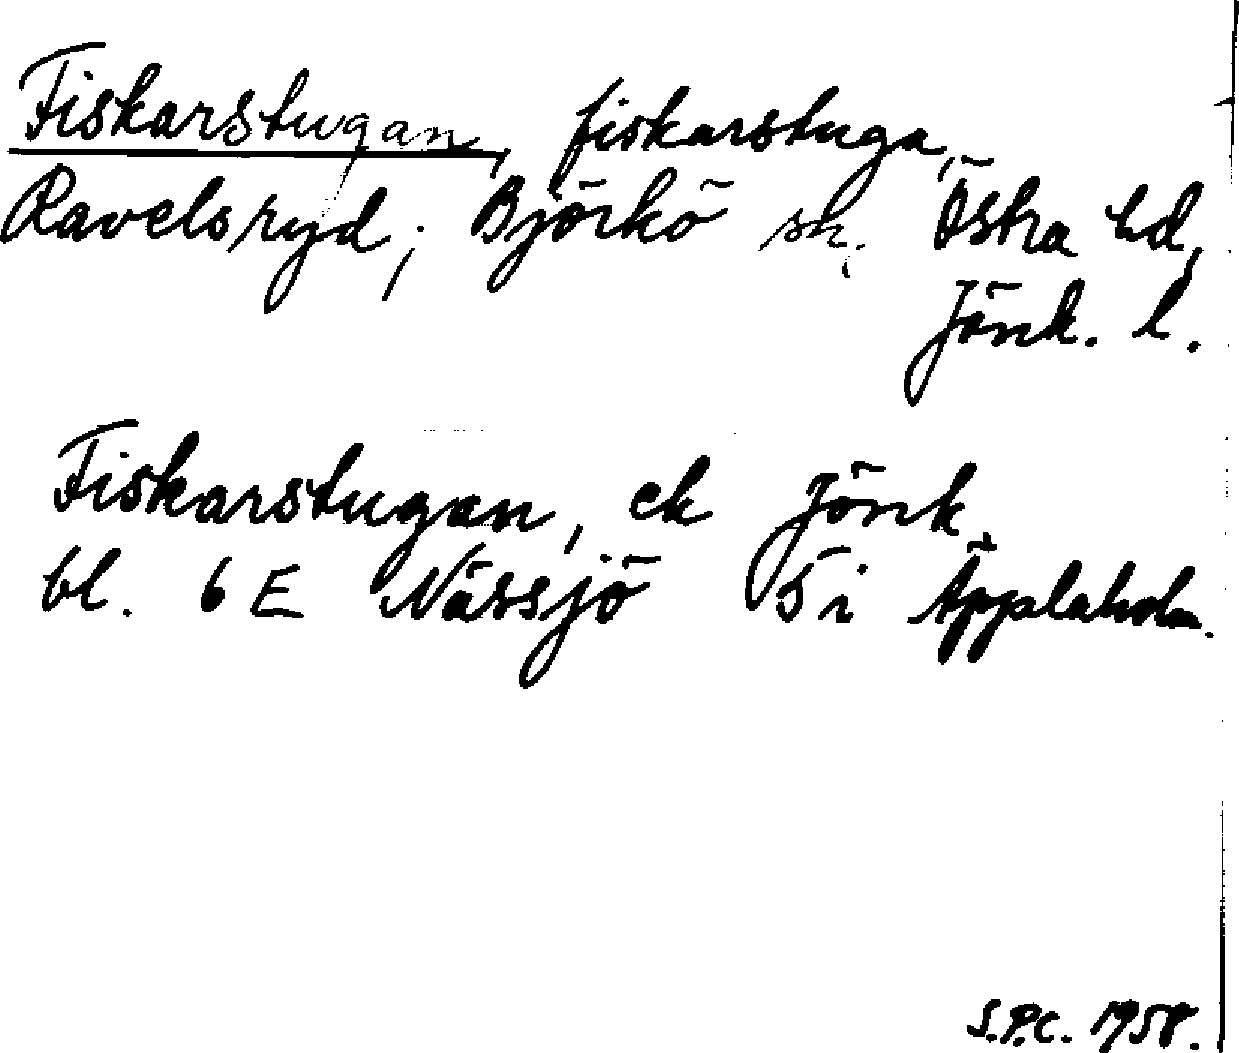 Fiskarstugan, fiskarstuga,
Ravelsryd, Björkö sn. Östra hd,
Jönk. l.
Fiskarstugan, ek Jönk.
bl. 6 E Nässjö 5 i Äpplaholm.
S.P.C. 1958.